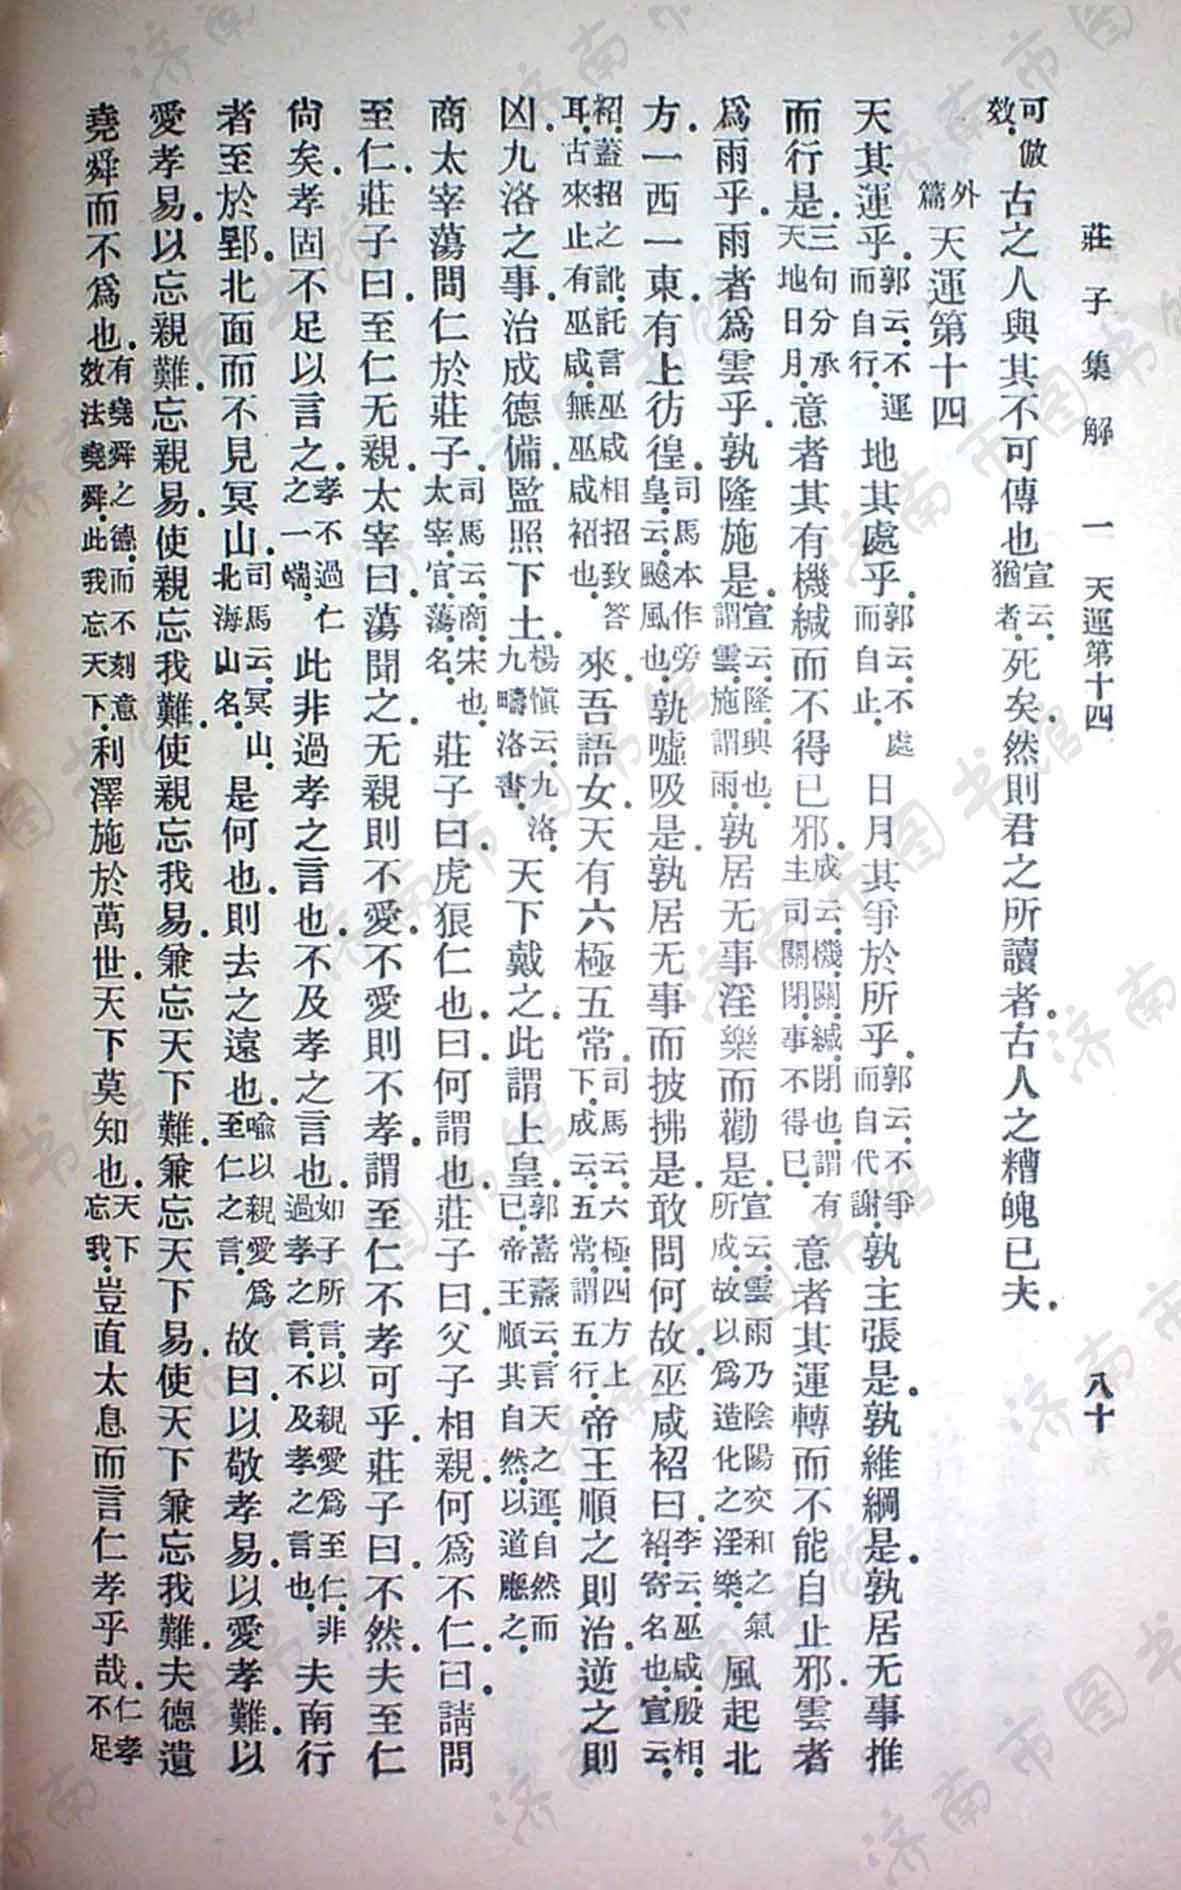 莊子集解　一　天運第十四　八十
可倣效。古之人與其不可傳也宣云。猶者。死矣。然則君之所讀者。古人之糟魄已夫。
外篇天運第十四
天其運乎。郭云。不運而自行。地其處乎。郭云。不處而自止。日月其爭於所乎。郭云。不爭而自代謝。孰主張是。孰維綱是。孰居无事推
而行是。三句分承天地日月。意者其有機緘而不得已邪。成云。機。關。緘。閉也。謂有主司關閉。事不得已。意者其運轉而不能自止邪。雲者
爲雨乎。雨者爲雲乎。孰隆施是。宣云。隆。興也。謂雲。施謂雨。孰居无事淫樂而勸是。宣云。雲雨乃陰陽交和之氣所成。故以爲造化之淫樂。風起北
方。一西一東。有上彷徨。司馬本作旁皇。云。飈風也。孰噓吸是。孰居无事而披拂是。敢問何故。巫咸祒曰。李云。巫咸。殷相。祒。寄名也。宣云。
祒。蓋招之訛。託言巫咸相招致答耳。古來止有巫咸。無巫咸祒也。來。吾語女。天有六極五常。司馬云。六極。四方上下。成云。五常。謂五行。帝王順之則治。逆之則
凶。九洛之事。治成德備。監照下土。楊愼云。九洛。九疇洛書。天下戴之。此謂上皇。郭嵩燾云。言天之運。自然而已。帝王順其自然。以道應之。
商太宰蕩問仁於莊子。司馬云。商。宋也。太宰。官。蕩。名。莊子曰。虎狼。仁也。曰。何謂也。莊子曰。父子相親。何爲不仁。曰。請問
至仁。莊子曰。至仁无親。太宰曰。蕩聞之。无親則不愛。不愛則不孝。謂至仁不孝可乎。莊子曰。不然。夫至仁
尙矣。孝固不足以言之。孝不過仁之一端。此非過孝之言也。不及孝之言也。如子所言。以親愛爲至仁。非過孝之言。不及孝之言也。夫南行
者至於郢。北面而不見冥山。司馬云。冥山。北海山名。是何也。則去之遠也。喩以親愛爲至仁之言。故曰。以敬孝易。以愛孝難。以
愛孝易。以忘親難。忘親易。使親忘我難。使親忘我易。兼忘天下難。兼忘天下易。使天下兼忘我難。夫德遺
堯舜而不爲也。有堯舜之德。而不刻意效法堯舜。此我忘天下。利澤施於萬世。天下莫知也。天下忘我。豈直太息而言仁孝乎哉。仁孝不足